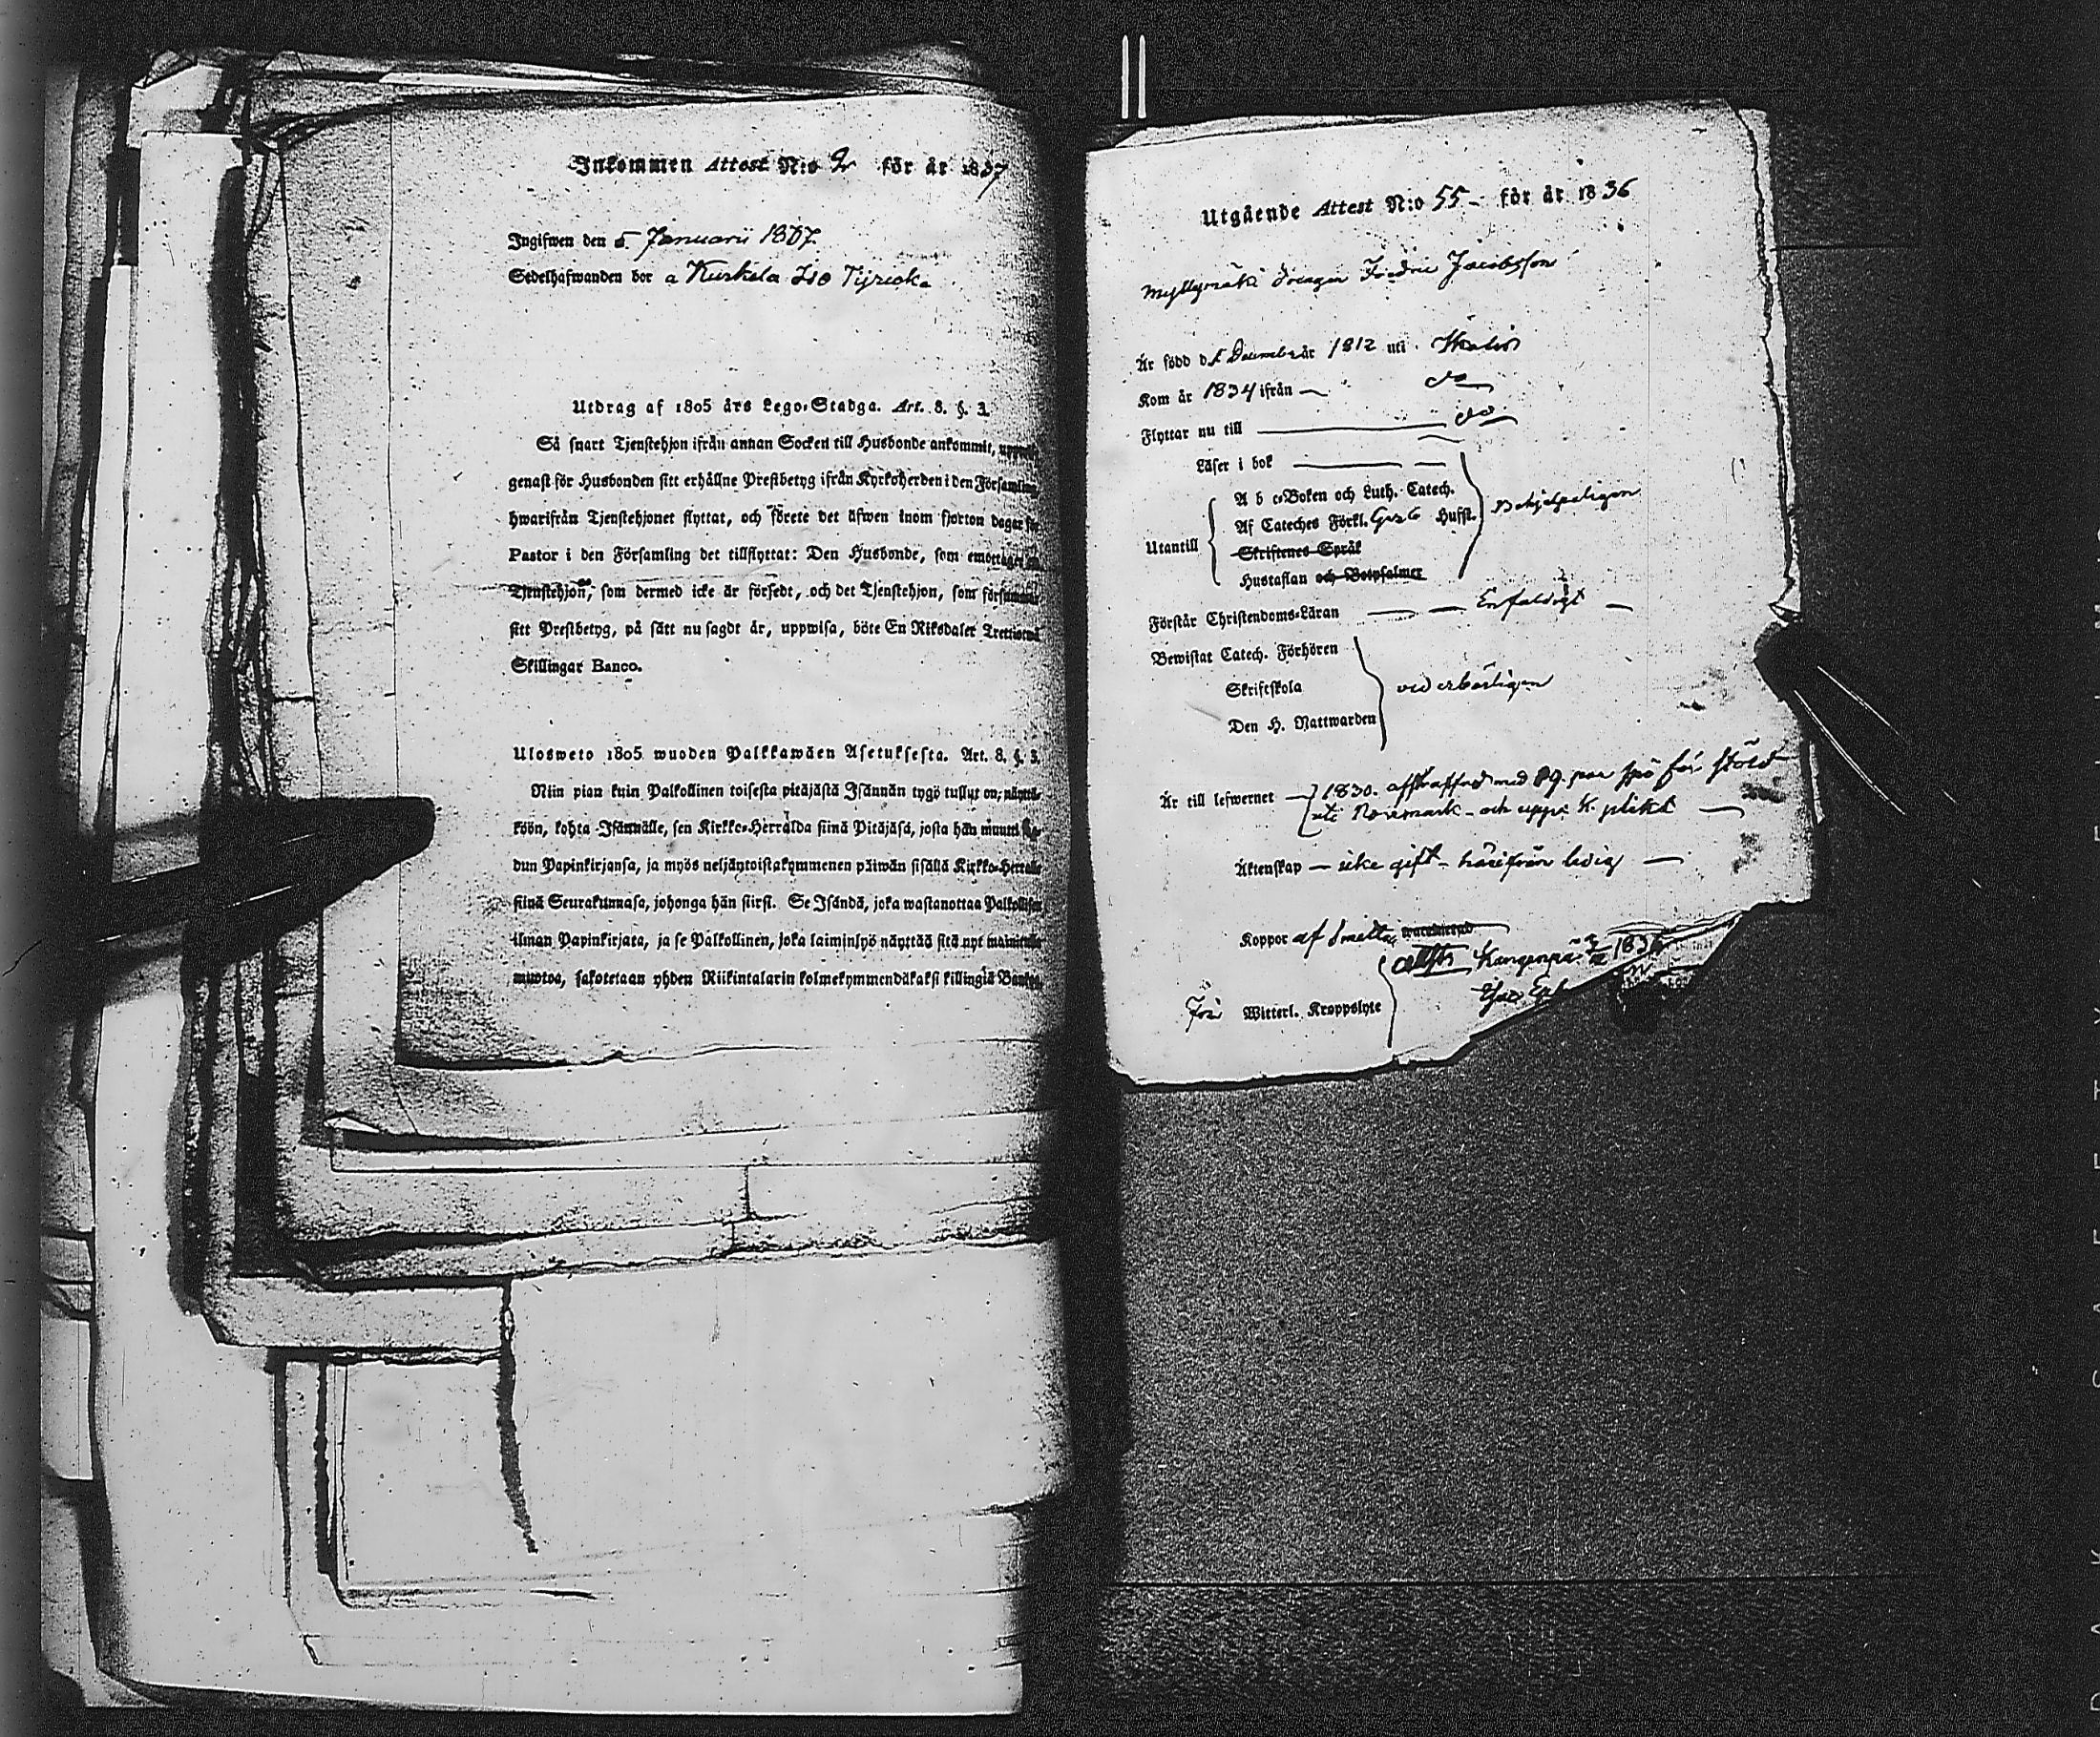 Inkommen Attest N:o 2 för år 1837
Ingifwen den 5 Januarii 1837
Sedelhafwanden bor a Kuskela Iso Tyrickö
Utdrag af 1805 års Lego-Stadga. Art. 8. §. 3.
Så snart Tjenstehjon ifrån annan Socken till Husbonde ankommit,
genast för Husbonden sitt erhållne Prestbetyg ifrån Kyrkoherden i den Församling
hwarifrån Tjenstehjonet flyttat, och förete det äfwen inom fjorton dagar för
Pastor i den Församling det tillflyttat: Den Husbonde, som emottager
Tjenstehjon, som dermed icke är försedt, och det Tjenstehjon, som försummar
sitt Prestbetyg, på sätt nu sagdt är, uppwisa, böte En Riksdaler Trettiotwå
Skillingar Banco.
Ulosweto 1805 wuoden Palkkawäen Asetuksesta. Art. 8. §. 3.
Niin pian kuin Palkollinen toisesta pitäjästä Isännän tygö tullut on, näyttä-
köön, kohta Isännälle, sen Kirkko-Herralda siinä Pitäjäsä, josta hän muutti
dun Papinkirjansa, ja myös neljäntoistakymmenen päiwän sisällä Kirkko-Herralle
siinä Seurakunnasa, johonga hän siirsi. Se Isändä, joka wastanottaa Palkollisen
ilman Papinkirjata, ja se Palkollinen, joka laiminlyö näyttää sitä nyt mainitulla
muotoa, sakotetaan yhden Riikintalarin kolmekymmendäkaksi killingiä Bankos.
Utgående Attest N:o 55 - för år 1836
Myllymäki Drengen Fredric Jacobsson
Är född d. December år 1812 uti
Kom år 1834 ifrån — do
Flyttar nu till — do
Läser i bok — —
Utantill
A b c-Boken och Luth. Catech.
Af Cateches Förkl. Husfl.
Skriftenes Språk
Hustaflan och Botpsalmer
Förstår Christendoms-Läran — — Enfaldigt —
Bewistat Catech. Förhören
Skriftskola
Den H. Nattwarden
vederbörligen
Är till lefwernet — 1830. afstraffad med par spö för stöld
uti och K. plikt —
Äktenskap — icke gift - härifrån ledig —
Koppor af
1836
Witterl. Kroppslyte